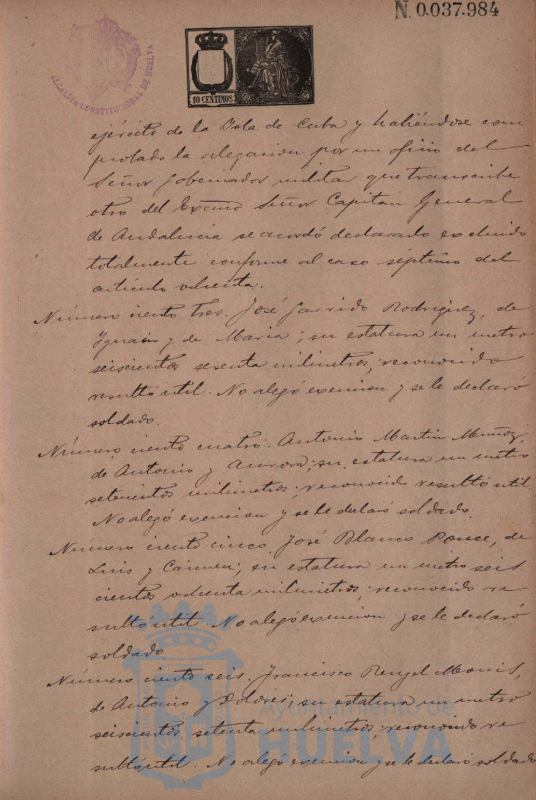 N. 0.037.984
ALCALDIA CONSTITUCIONAL DE HUELVA
10 CENTIMOS
ejército de la Isla de Cuba y habiéndose com
probado la alegacion por un oficio del
Señor Gobernador militar que transcribe
otro del Excmo Señor Capitan General
de Andalucía se acordó declararlo excluido
totalmente conforme al caso septimo del
artículo ochenta.
Número ciento tres. José Garrido Rodriguez, de
Ignacio y de Maria; su estatura un metro
seiscientos sesenta milimetros; reconocido
resultó util. No alegó exencion y se le declaró
soldado.
Número ciento cuatro. Antonio Martin Muñoz,
de Antonio y Aurora; su estatura un metro
setecientos milimetros; reconocido resultó util
No alegó exencion y se le declaro soldado.
Número ciento cinco. José Blanco Ponce, de
Luis y Carmen; su estatura un metro seis
cientos ochenta milimetros; reconocido re
sultó util. No alegó exencion y se le declaró
soldado.
Número ciento seis. Francisco Rengel Monis,
de Antonio y Dolores; su estatura un metro
seiscientos setenta milimetros; reconocido re
sultó util. No alegó exencion y se le declaró soldado
Ayuntamiento de
HUELVA